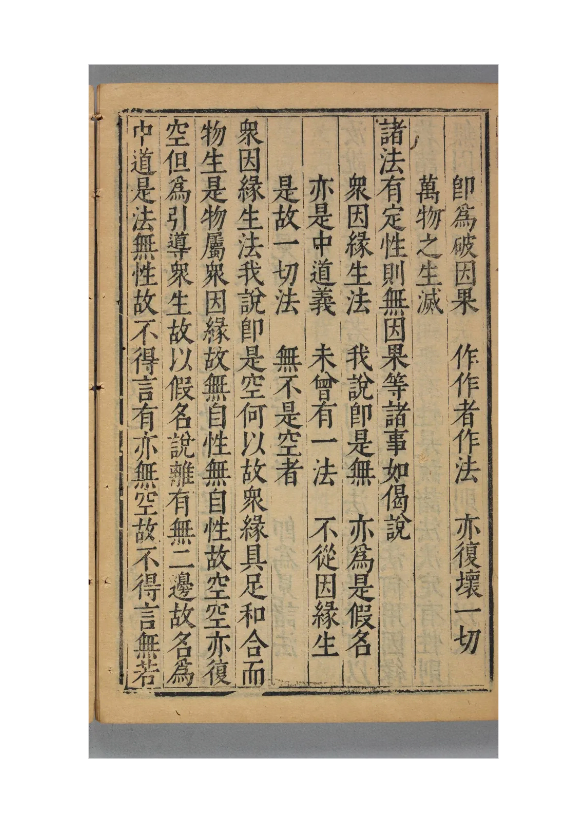 卽爲破因果　作作者作法　亦復壞一切
萬物之生滅
諸法有定性則無因果等諸事如偈說
衆因緣生法　我說卽是無　亦爲是假名
亦是中道義　未曾有一法　不從因緣生
是故一切法　無不是空者
衆因緣生法我說卽是空何以故衆緣具足和合而
物生是物屬衆因緣故無自性無自性故空空亦復
空但爲引導衆生故以假名說離有無二邊故名爲
中道是法無性故不得言有亦無空故不得言無若